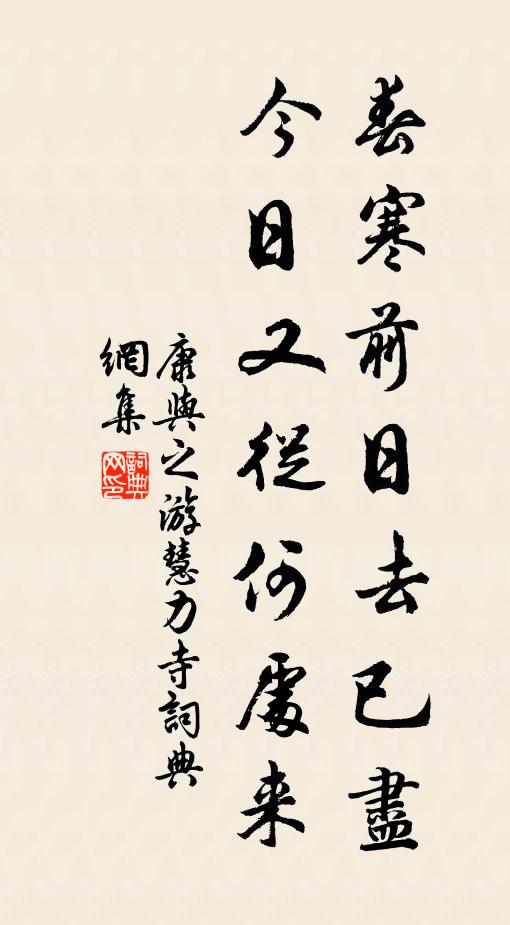 春寒前日去已盡
今日又從何處来
康與之游慧力寺詞典
網集
詞典
网印